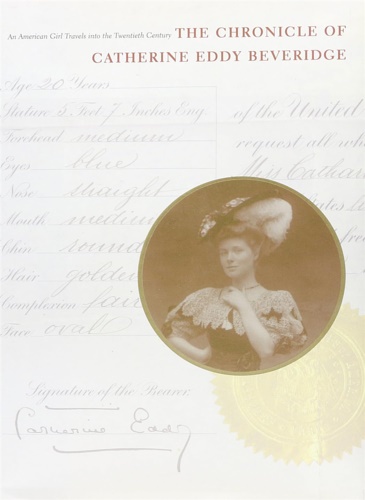 An American Girl Travels into the Twentieth Century THE CHRONICLE OF
CATHERINE EDDY BEVERIDGE
Age 20 Years
Stature 5 Feet 7 Inches Eng.
Forehead medium
Eyes blue
Nose straight
Mouth medium
Chin round
Hair golden
Complexion fair
Face oval
of the United
request all
Miss
Signature of the Bearer.
Catherine Eddy